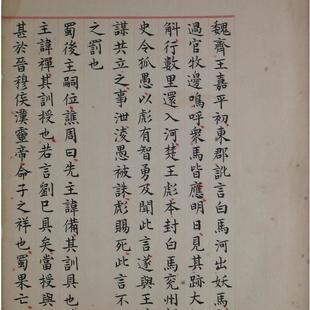 魏齊王嘉平初東郡訛言白馬河出妖馬
過官牧邊鳴呼衆馬皆應明日見其跡大
斛行數里還入河楚王彪本封白馬兗州
史令狐愚以彪有智勇及聞此言遂與王
謀共立之事泄淩愚被誅彪賜死此言不
之罰也
蜀後主嗣位譙周曰先主諱備其訓具也
主諱禪其訓授也若言劉已具矣當授與
甚於晉穆侯漢靈帝命子之祥也蜀果亡